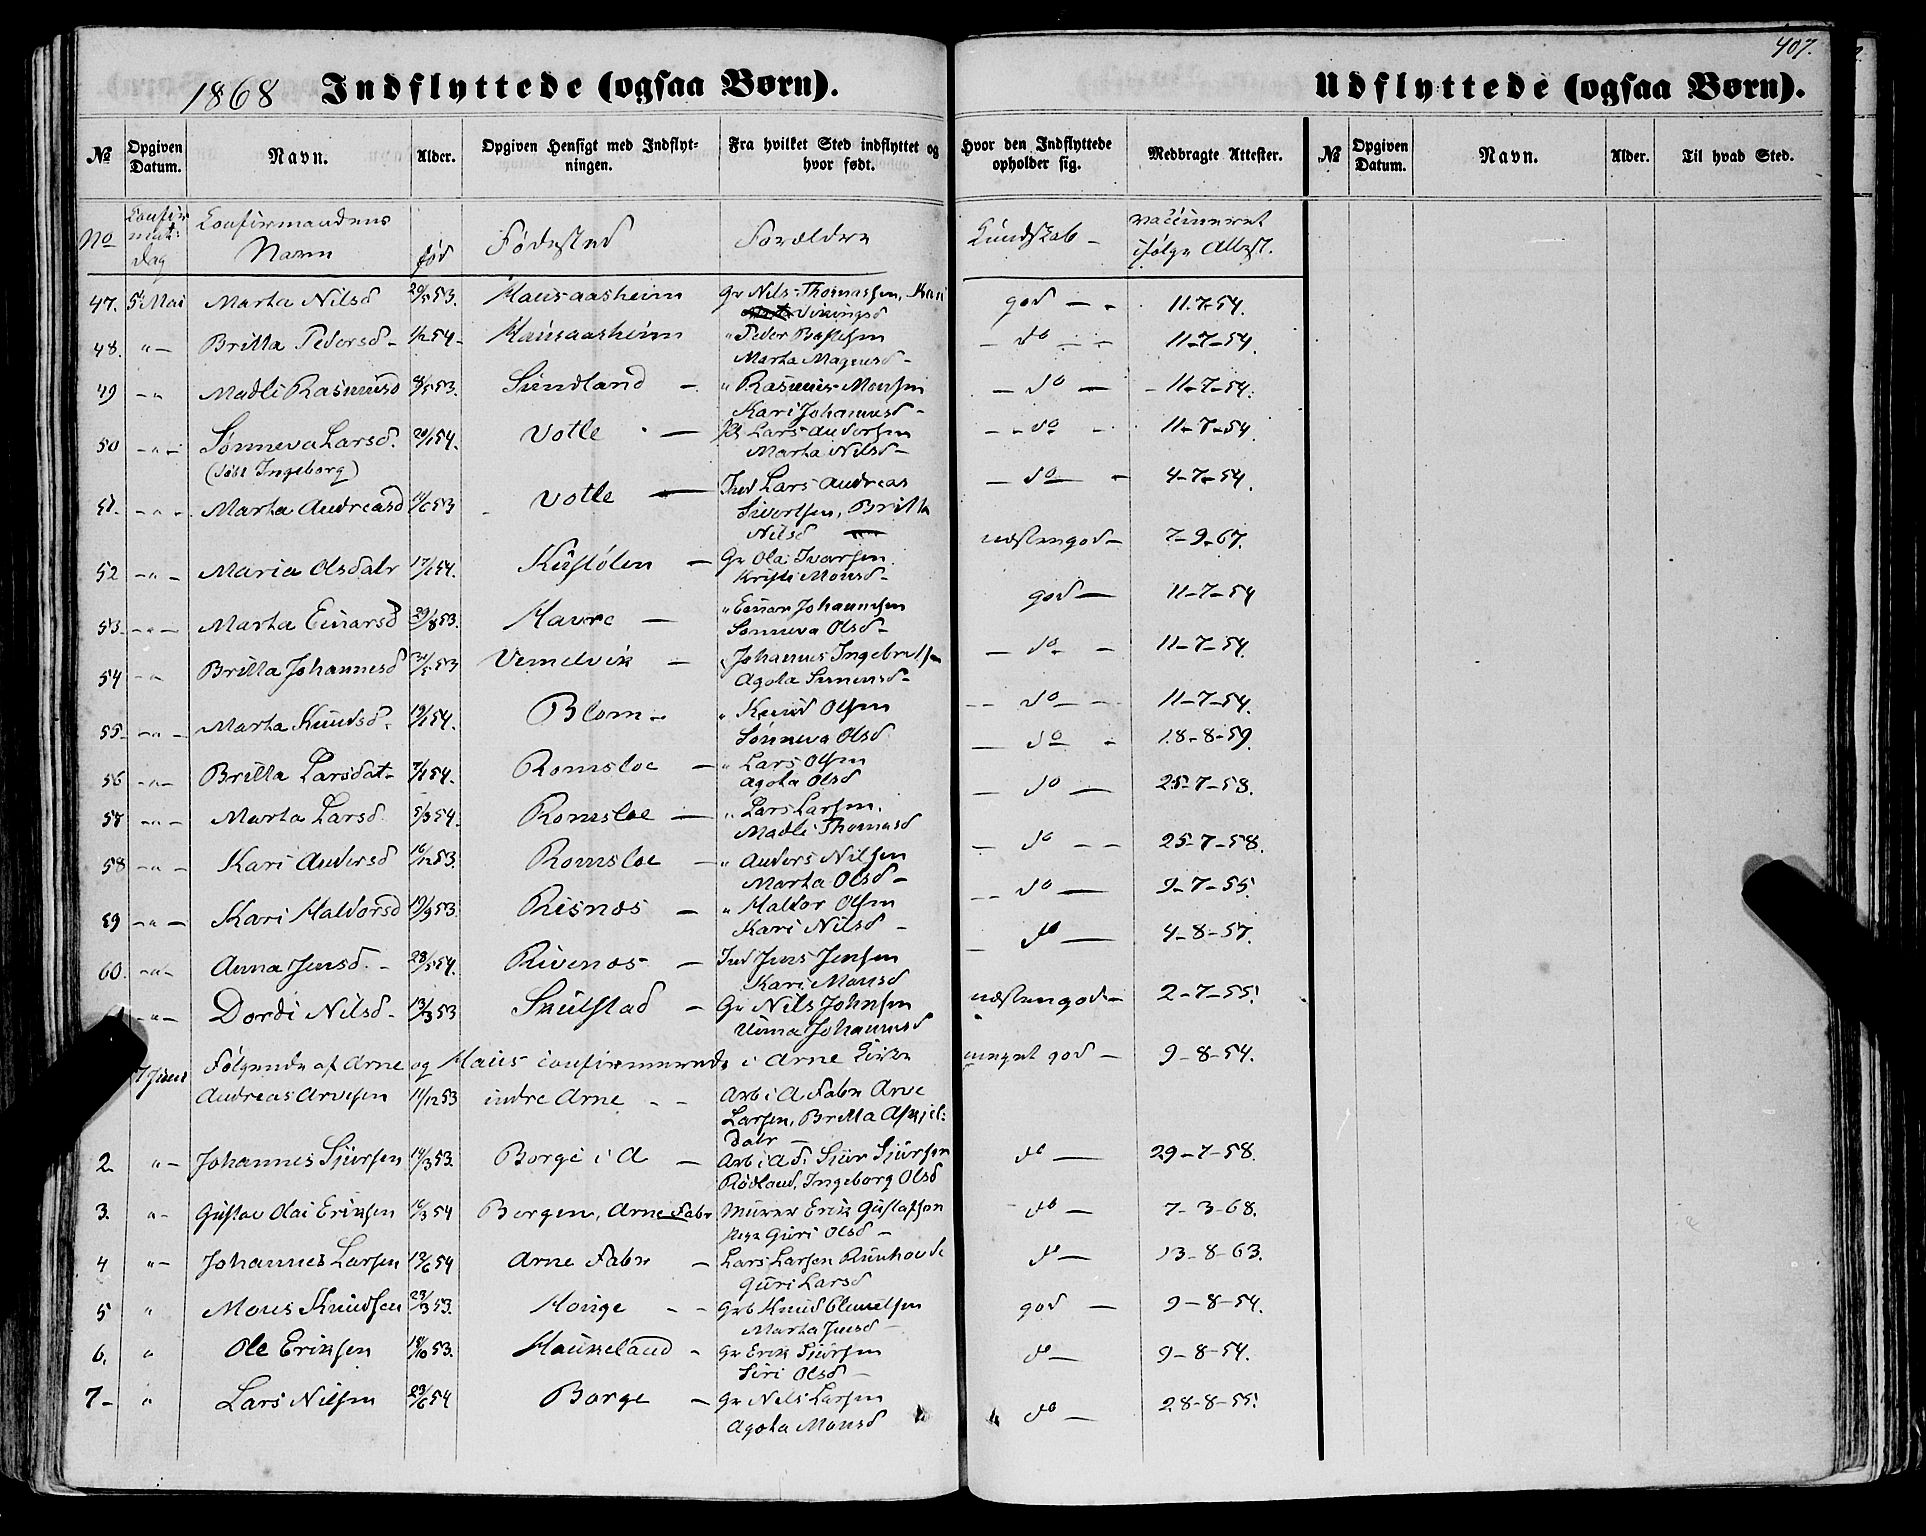 407.
1868 Indflyttede (ogsaa Børn). Udflyttede (ogsaa Børn).
No Opgiven Datum. Navn. Alder. Opgiven Hensigt med Indflytningen. Fra hvilket Sted indflyttet og hvor født. Hvor den Indflyttede opholder sig. Medbragte Attester. No Opgiven Datum. Navn. Alder. Til hvad Sted.
No Confirmat: dag Confirmandens Navn fød Fødested Forældre Kundskab - vaccineret ifølge Attest.
47. 5 Mai Marta Nilsd 29/5 53. Hausaasheim Gr Nils Thomassen, Kari Vikingsd god - - 11-7-54.
48. " - Britta Pedersd - 1/2 54 - Hausaasheim " Peder Bastesen Marta Magnusd - - do - - 11-7-54.
49 - " Madli Rasmusd 8/5 53. Sundland - " Rasmus Monsen Kari Johannesd - - do - - 11-7-54.
50 - " - Sønneva Larsd. (døbt Ingeborg) 20/1 54. Votle - Lars Andersen Marta Nilsd - - - do - 11-7-54.
51. - " - Marta Andreasd 11/6 53 Votle - Ind Lars Andreas Sivertsen, Britta Nilsd - do - 4-7-54.
52 - " - Maria Olsdatr 17/1 54. Kustølen - Gr Ola Ivarsen Kristi Monsd - næsten god - 7-9-67.
53 - " - Marta Einarsd 29/8 53. Havre - " Einar Johannesen Sønneva Olsd - god - 11-7-54
54 - " Britta Johannesd 31/5 53 Vemelvik - " Johannes Ingebretsen Agota Simensd - - do - 11-7-54.
55 - " - Marta Knudsd - 19/1 54. Blom - " Knud Olsen Sønneva Olsd - - do - - 11-7-54.
56 - " - Britta Larsdat - 7/1 54. Romsloe - " Lars Olsen Agota Olsd - do - 18-8-59.
57 - " - Marta Larsd 5/3 54. Romsloe - " Lars Larsen. Madli Thomasd - do - 25-7-58.
58 - " - Kari Andersd 16/12 53. Romsloe - " Anders Nilsen Marta Olsd - - do - - 25-7-58.
59 - " - Kari Haldorsd 19/9 53. Risnes - " Haldor Olsen Kari Nilsd - - do - 9-7-55
60. - " - Anna Jensd. - 28/5 54. Rivenes - Ind Jens Jensen Kari Monsd - do - 4-8-57.
- " - Dordi Nilsd - 13/3 53 Smelstad - Gr Nils Johnsen Johannesd næsten god - 2-7-55.
Følgende af Arne og Haus confirmerede i Arne Kirke
7 Juni Andreas Arnesen 11/12 53 indre Arne - - Arb i A Fabr Arne Larsen, Britta Askjeldatr - meget god - 9-8-54.
2. " - Johannes Sjursen 14/3 53. Borge i A - Arb i A F. Sjur Sjursen Rødland, Ingeborg Olsd do - 29-7-58.
3. " - Gustav Olai Eriksen 16/3 54 Borgen, Arne Fabr Murer Erik Gustafsen Guri Olsd - do - 7-3-68.
4 " - Johannes Larsen 13/6 54 Arne Fabr - Lars Larsen Runhovde Guri Larsd do - 13-8-63.
5 " Mons Knudsen 23/3 53. Houge - - Grb Knud Clemetsen Marta Jensd - god - 9-8-54.
6. " Ole Eriksen 18/10 53. Haukeland - Gr Erik Sjursen Siri Olsd - do - 9-8-54.
7 - " Lars Nilsen 23/6 54 Borge - Gr Nils Larsen Agota Monsd do - 28-8-55.